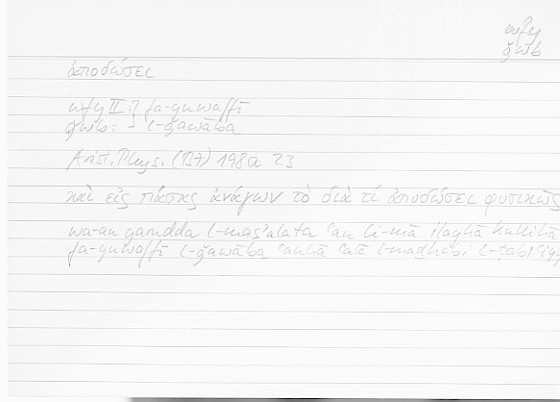 wfy
ǧwb
ἀποδώσει
wfy II: } fa-yuwaffī
ǧwb: } l-ǧawāba
Arist. Phys. (B7) 198a 23
καὶ εἰς πάσας ἀνάγων τὸ διὰ τί ἀποδώσει φυσικῶς
wa-an yarudda l-masʾalata ʿan li-mā ilayhā kullihā
fa-yuwaffī l-ǧawāba ʿanhā ʿalā l-maḏhabi l-ṭabīʿīyi